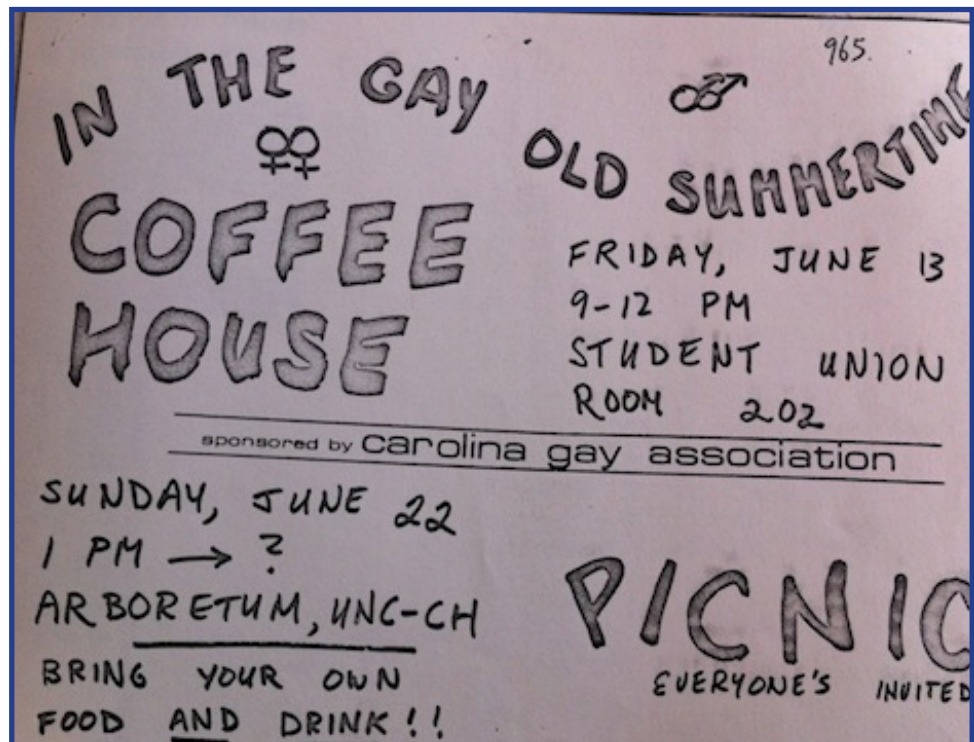 965.
IN THE GAY
OLD SUMMERTIME
COFFEE
HOUSE
FRIDAY, JUNE 13
9-12 PM
STUDENT UNION
ROOM 202
sponsored by carolina gay association
SUNDAY, JUNE 22
1 PM → ?
ARBORETUM, UNC-CH
BRING YOUR OWN
FOOD AND DRINK!!
PICNIC
EVERYONE'S INVITED